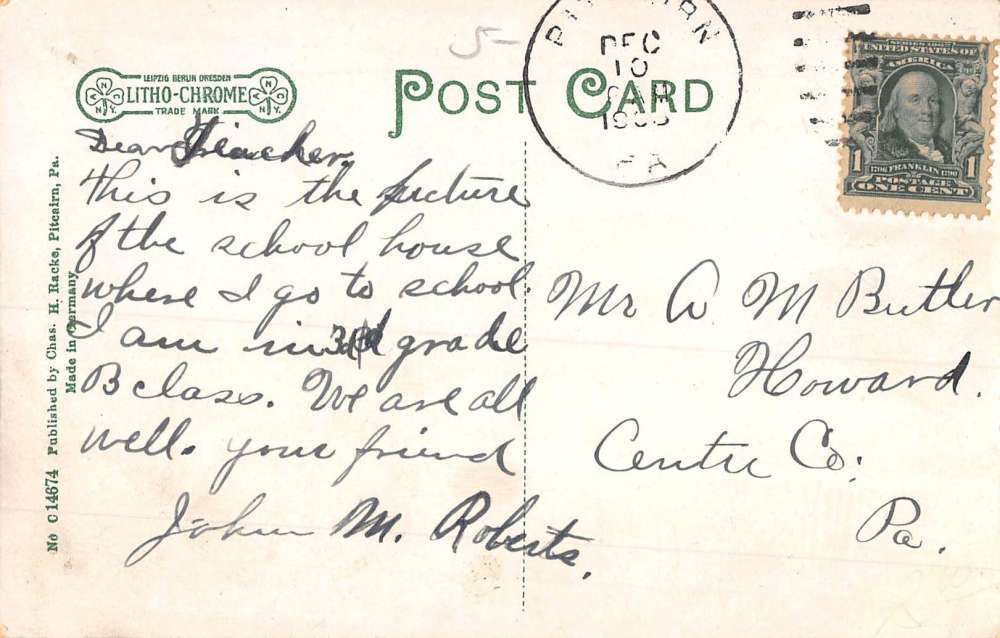 LEIPZIG BERLIN DRESDEN
LITHO-CHROME
TRADE MARK
N.Y.
N.Y.
POST CARD
5-
PITCAIRN
DEC
10
PA
SERIES 1902
UNITED STATES OF
AMERICA
1
1706 FRANKLIN 1790
1
POSTAGE
ONE CENT
Dear Teacher,
This is the picture
of the school house
where I go to school.
I am in 3rd grade
B class. We are all
well. your friend
John M. Roberts.
Mr A M Butler
Howard.
Centre Co.
Pa.
No C 14674 Published by Chas. H. Racke, Pitcairn, Pa.
Made in Germany